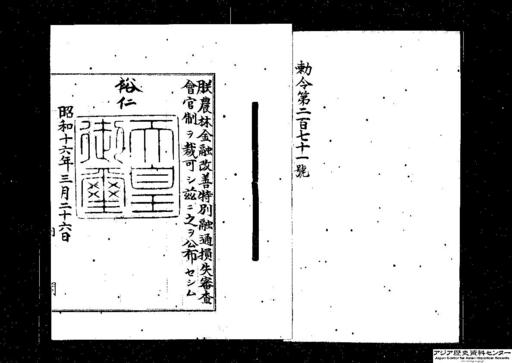 勅令第二百七十一號
朕農林金融改善特別融通損失審査
會官制ヲ裁可シ茲ニ之ヲ公布セシム
裕仁
天皇
御璽
昭和十六年三月二十六日
アジア歴史資料センター
Japan Center for Asian Historical Records